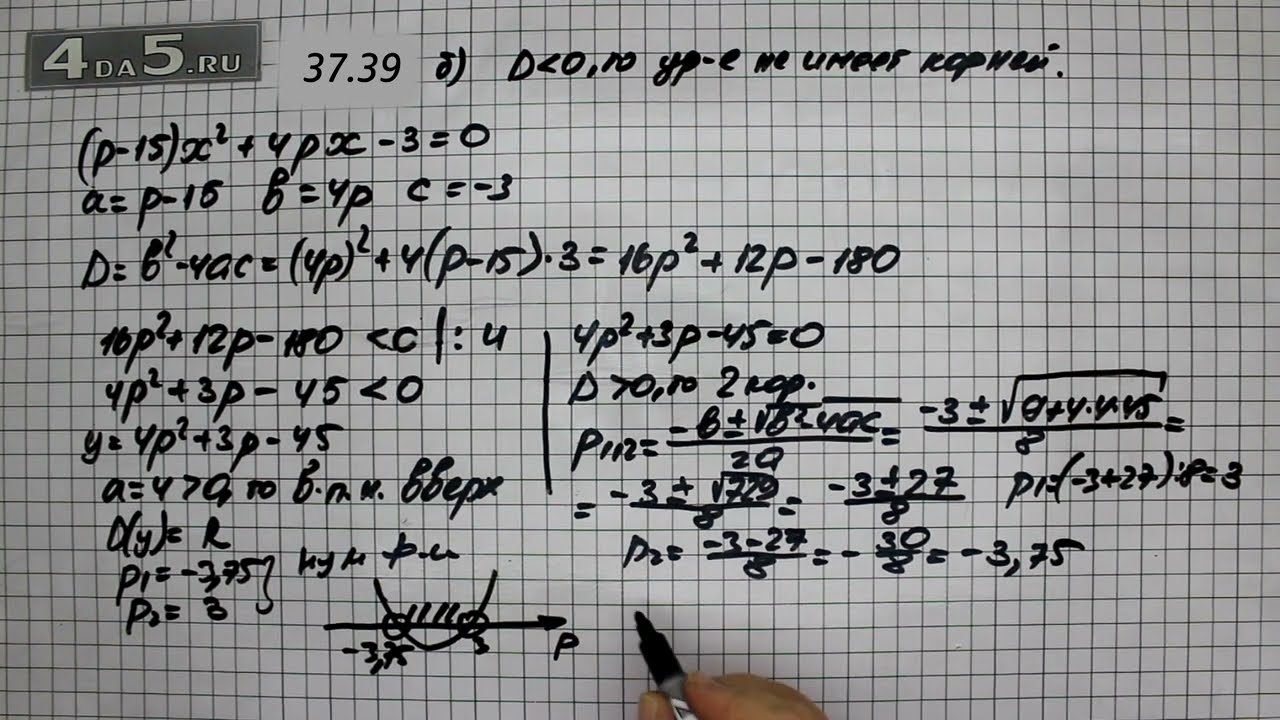 4DA5.RU
37.39 б) D<0, то ур-е не имеет корней.
(p-15)x²+4px-3=0
a=p-15 в=4p c=-3
D=в²-4ac=(4p)²+4(p-15)·3=16p²+12p-180
16p²+12p-180<0 |:4
4p²+3p-45<0
y=4p²+3p-45
a=4>0, то в.п.н. вверх
D(y)=R
p₁=-3,75 } нули ф-и
p₂=3
-3,75 3 p
4p²+3p-45=0
D>0, то 2 кор.
p₁,₂=(-в±√(в²-4ac))/(2a)=(-3±√(9+4·4·45))/8=
=(-3±√729)/8=(-3±27)/8 p₁=(-3+27):8=3
p₂=(-3-27)/8=-30/8=-3,75